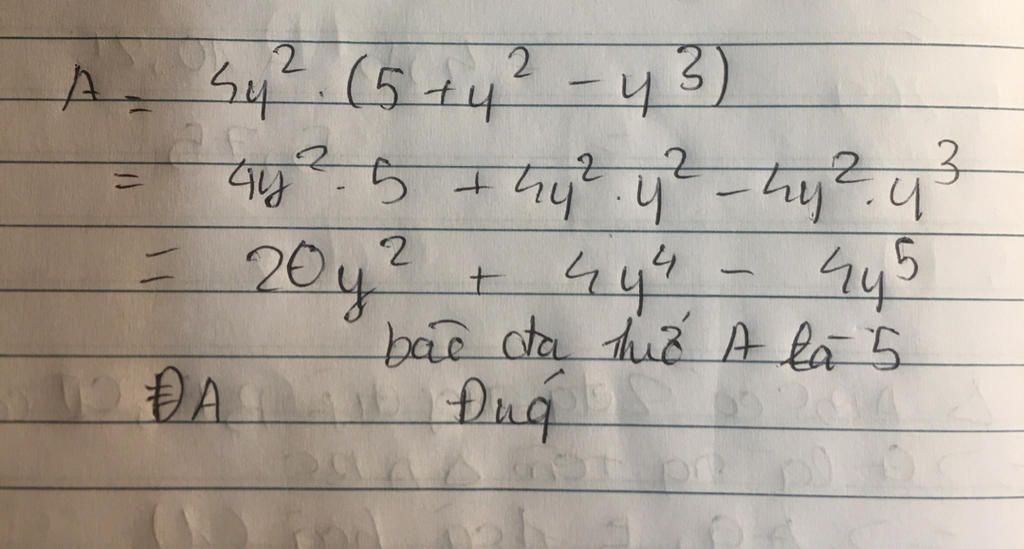 A = 4y² . (5 + y² - y³)
= 4y² . 5 + 4y² . y² - 4y² . y³
= 20y² + 4y⁴ - 4y⁵
bậc đa thứ A là 5
ĐA Đúg